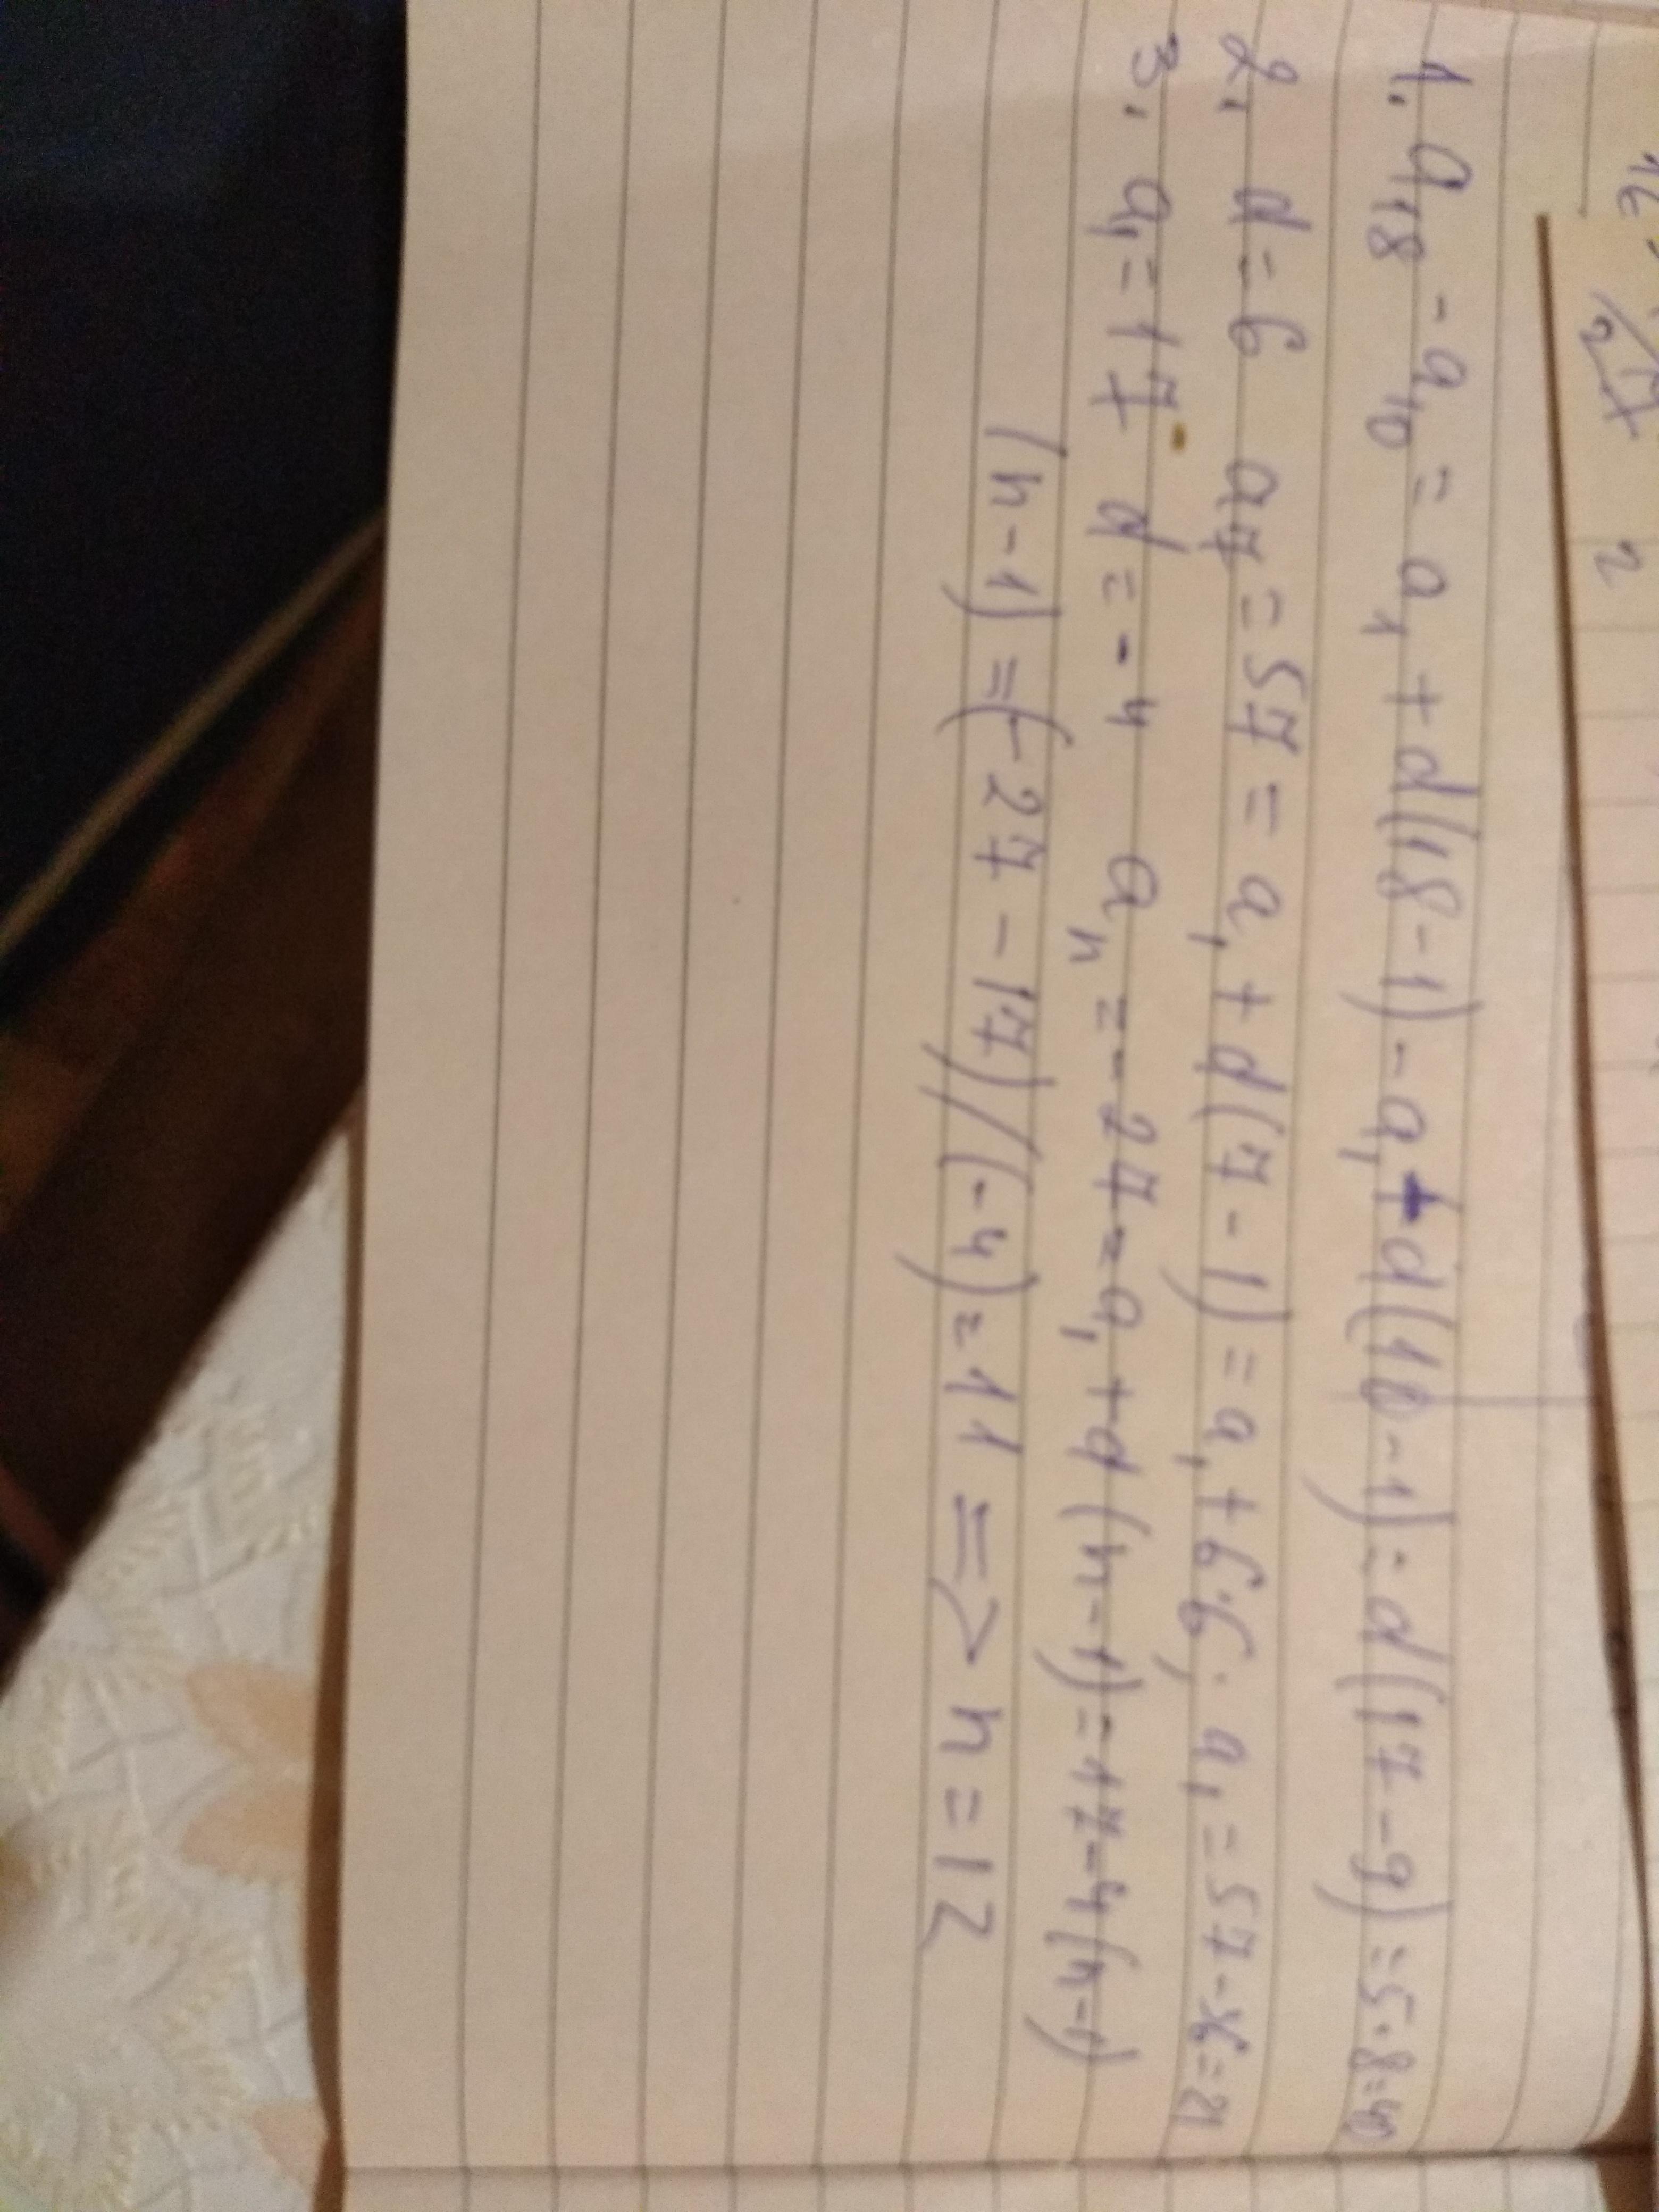 1. a₁₈ - a₁₀ = a₁ + d(18-1) - a₁ + d(10-1) = d(17-9) = 5·8=40
2. d=6 a₇=57=a₁+d(7-1)=a₁+6·6; a₁=57-36=21
3. a₁=17 d=-4 aₙ=-27=a₁+d(n-1)=17-4(n-1)
(n-1)=(-27-17)/(-4)=11 => n=12